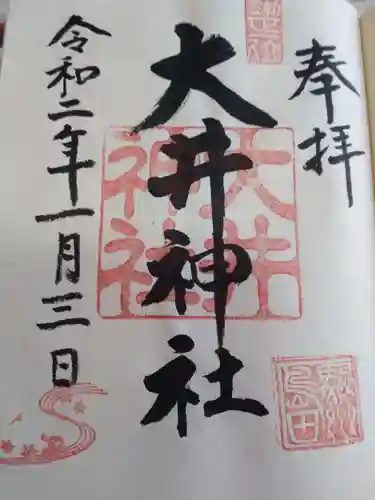 奉拝
大井神社
令和二年一月三日
大井神社
駿州島田